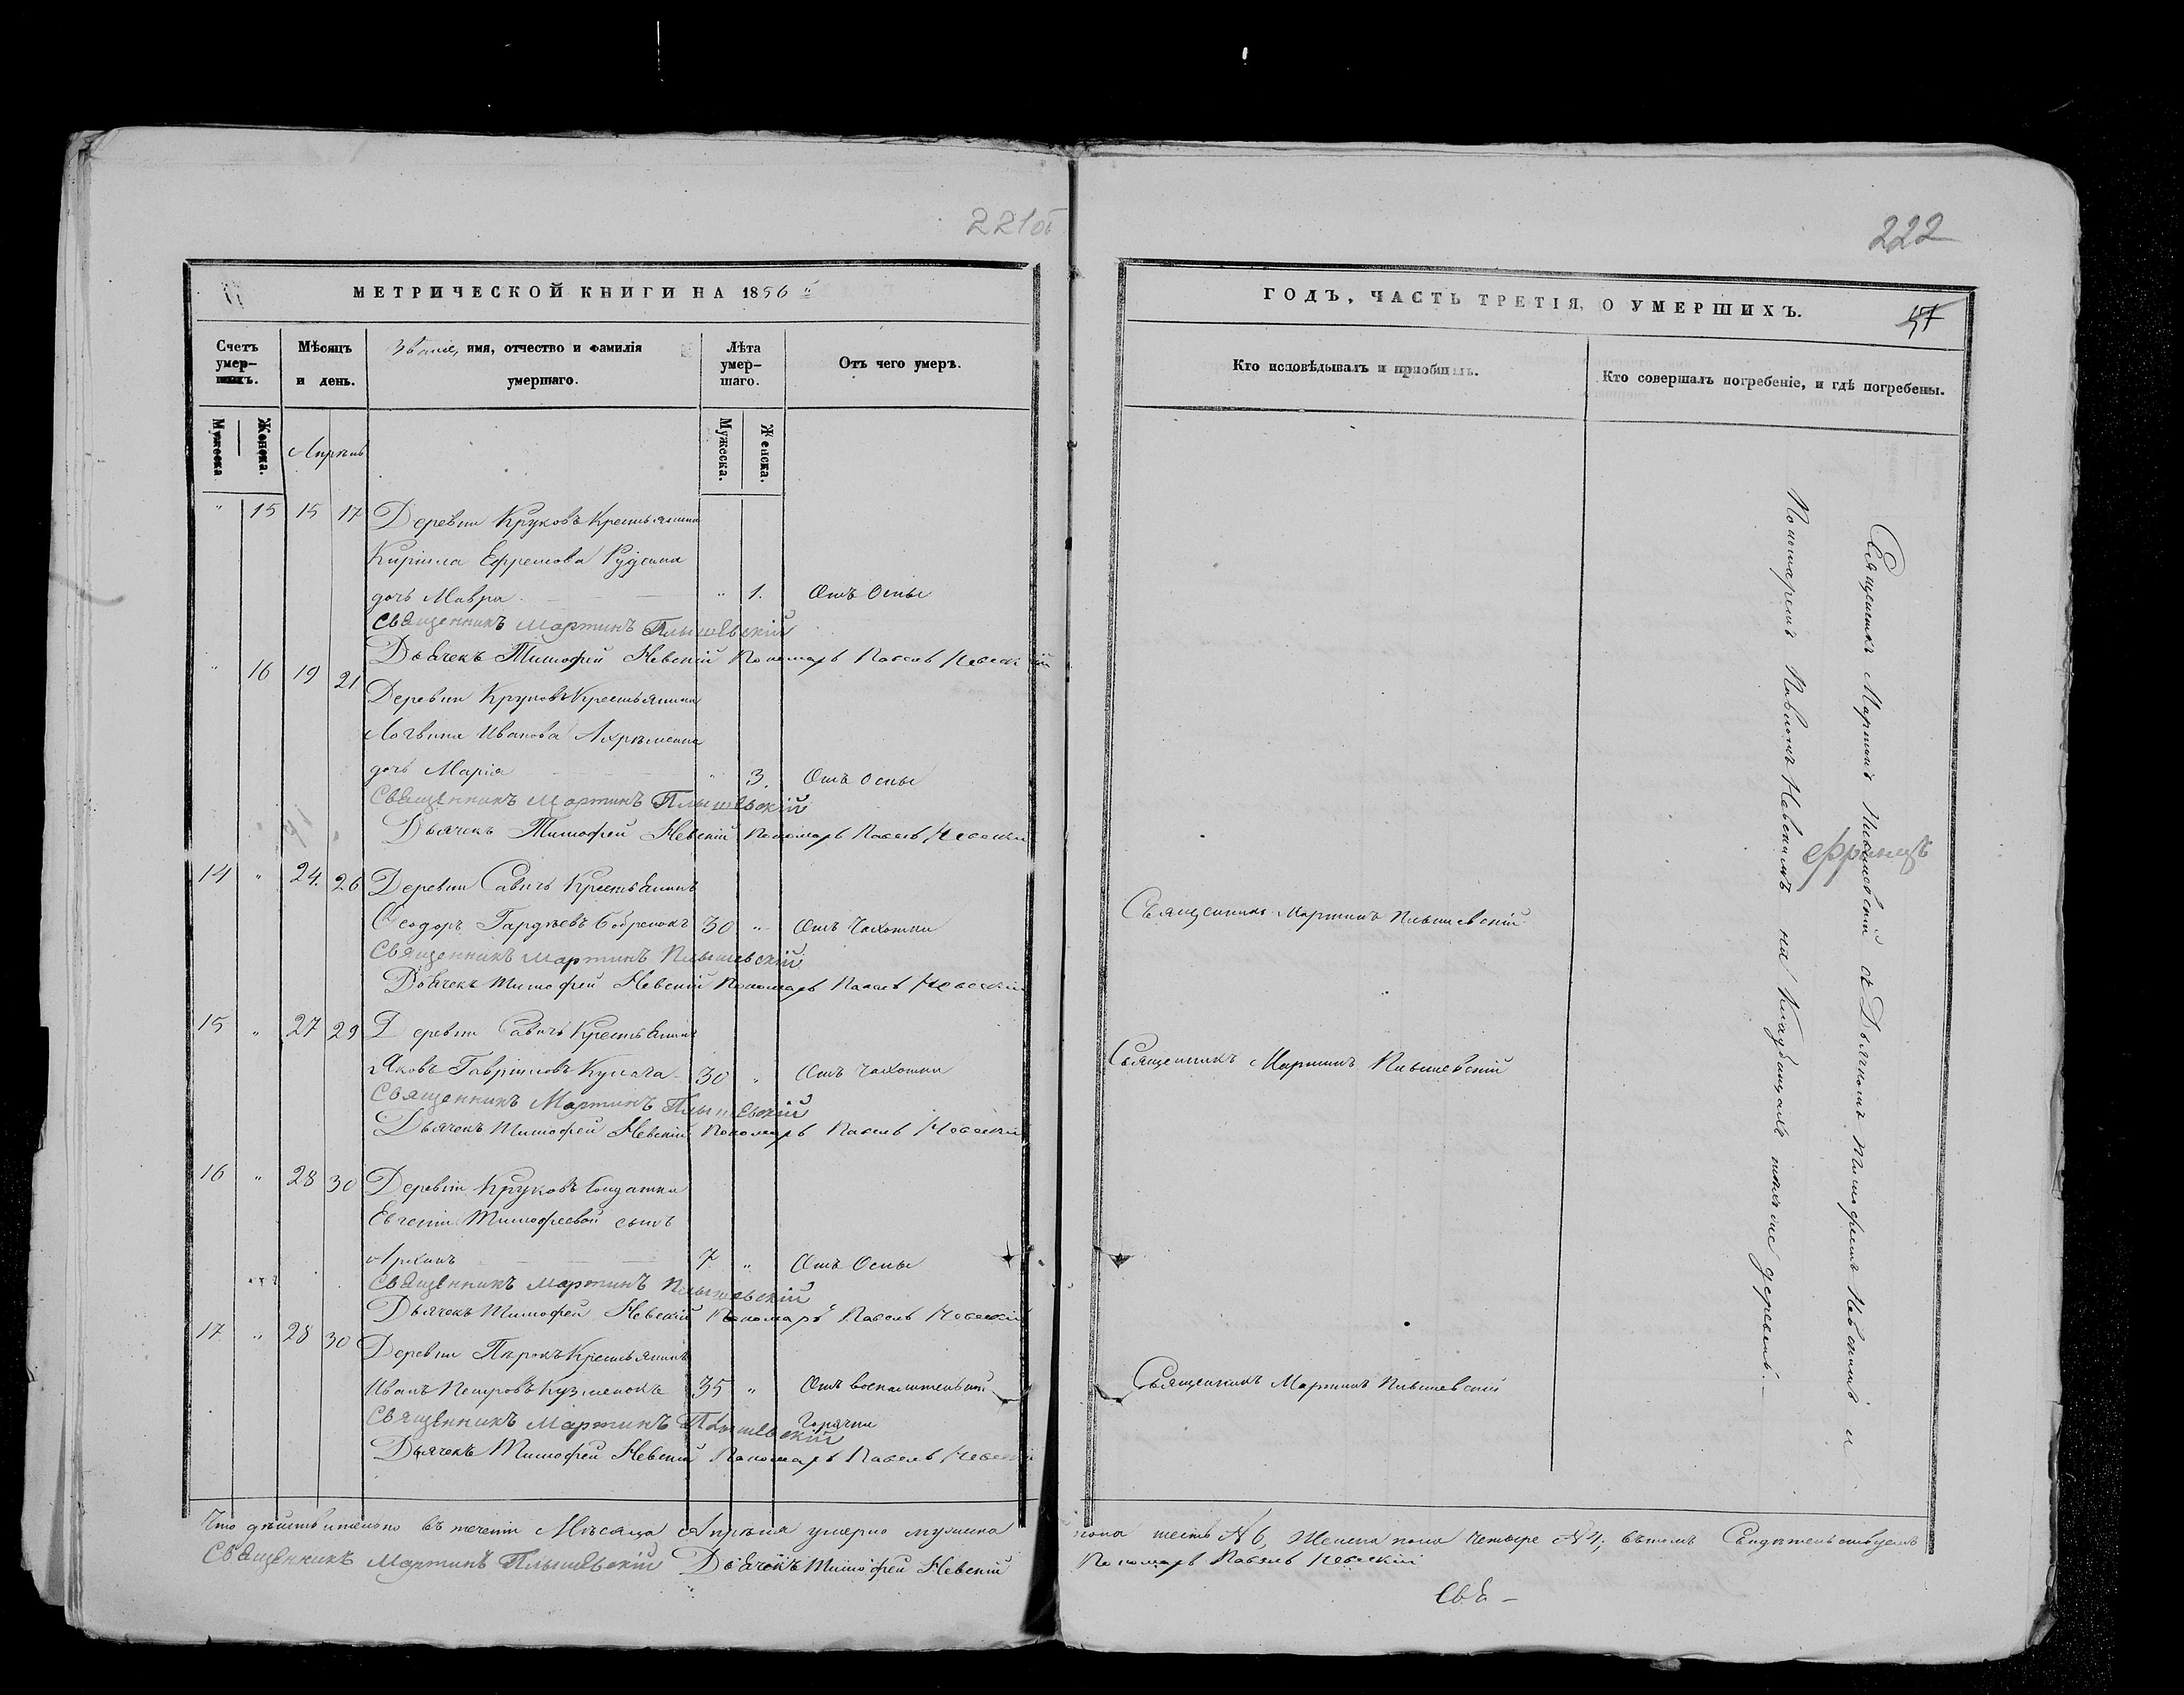 221об
222
МЕТРИЧЕСКОЙ КНИГИ НА 1856 й
ГОДЪ, ЧАСТЬ ТРЕТІЯ, О УМЕРШИХЪ.
57
Счетъ умер-шихъ.
Мѣсяцъ и день.
Званіе, имя, отчество и фамилія умершаго.
Лѣта умер-шаго.
Отъ чего умеръ.
Кто исповѣдывалъ и пріобщалъ.
Кто совершалъ погребеніе, и гдѣ погребены.
Мужеска
Женска.
Апрѣль
Мужеска.
Женска.
" 15 15 17 Деревни Круковъ Крестьянина
Кирилла Ефремова Рудєнка
дочь Мавра " 1. Отъ Оспы
Священникъ Мартинъ Плышевскій
Дьячекъ Тимофей Невскій Пономарь Павелъ Невскій
" 16 19 21 Деревни Круковъ Крестьянина
Логвина Иванова Ахрѣменка
дочь Марія " 3. Отъ Оспы
Священникъ Мартинъ Плышевскій
Дьячекъ Тимофей Невскій Пономарь Павелъ Невскій
14 " 24. 26 Деревни Савичъ Крестьянинъ
Феодоръ Гордѣевъ Бобренокъ 30 " Отъ Чахотки
Священникъ Мартинъ Плышевскій
Священникъ Мартинъ Плышевскій
Дьячекъ Тимофей Невскій Пономарь Павелъ Невскій
15 " 27 29 Деревни Савичъ Крестьянинъ
Яковъ Гавриловъ 30 " Отъ Чахотки
Священникъ Мартинъ Плышевскій
Священникъ Мартинъ Плышевскій
Дьячекъ Тимофей Невскій Пономарь Павелъ Невскій
16 " 28 30 Деревни Круковъ Солдатки
Евгеніи Тимофеевой сынъ
7 " Отъ Оспы
Священникъ Мартинъ Плышевскій
Дьячекъ Тимофей Невскій Пономарь Павелъ Невскій
17 " 28 30 Деревни Крестьянинъ
Иванъ Петровъ Кузменокъ 35 " Отъ воспалительной
Горячки
Священникъ Мартинъ Плышевскій
Священникъ Мартинъ Плышевскій
Дьячекъ Тимофей Невскій Пономарь Павелъ Невскій
Священникъ Мартинъ Плышевскій съ Дьячкомъ Тимофеемъ Невскимъ и
Пономаремъ Павломъ Невскимъ на Кладбищахъ деревень.
Что дѣйствительно въ теченіи Мѣсяца Апрѣля умерло мужеска пола шесть № 6, Женска пола Четыре № 4; въ томъ Свидѣтельствуемъ
Священникъ Мартинъ Плышевскій Дьячекъ Тимофей Невскій Пономарь Павелъ Невскій
Свя-